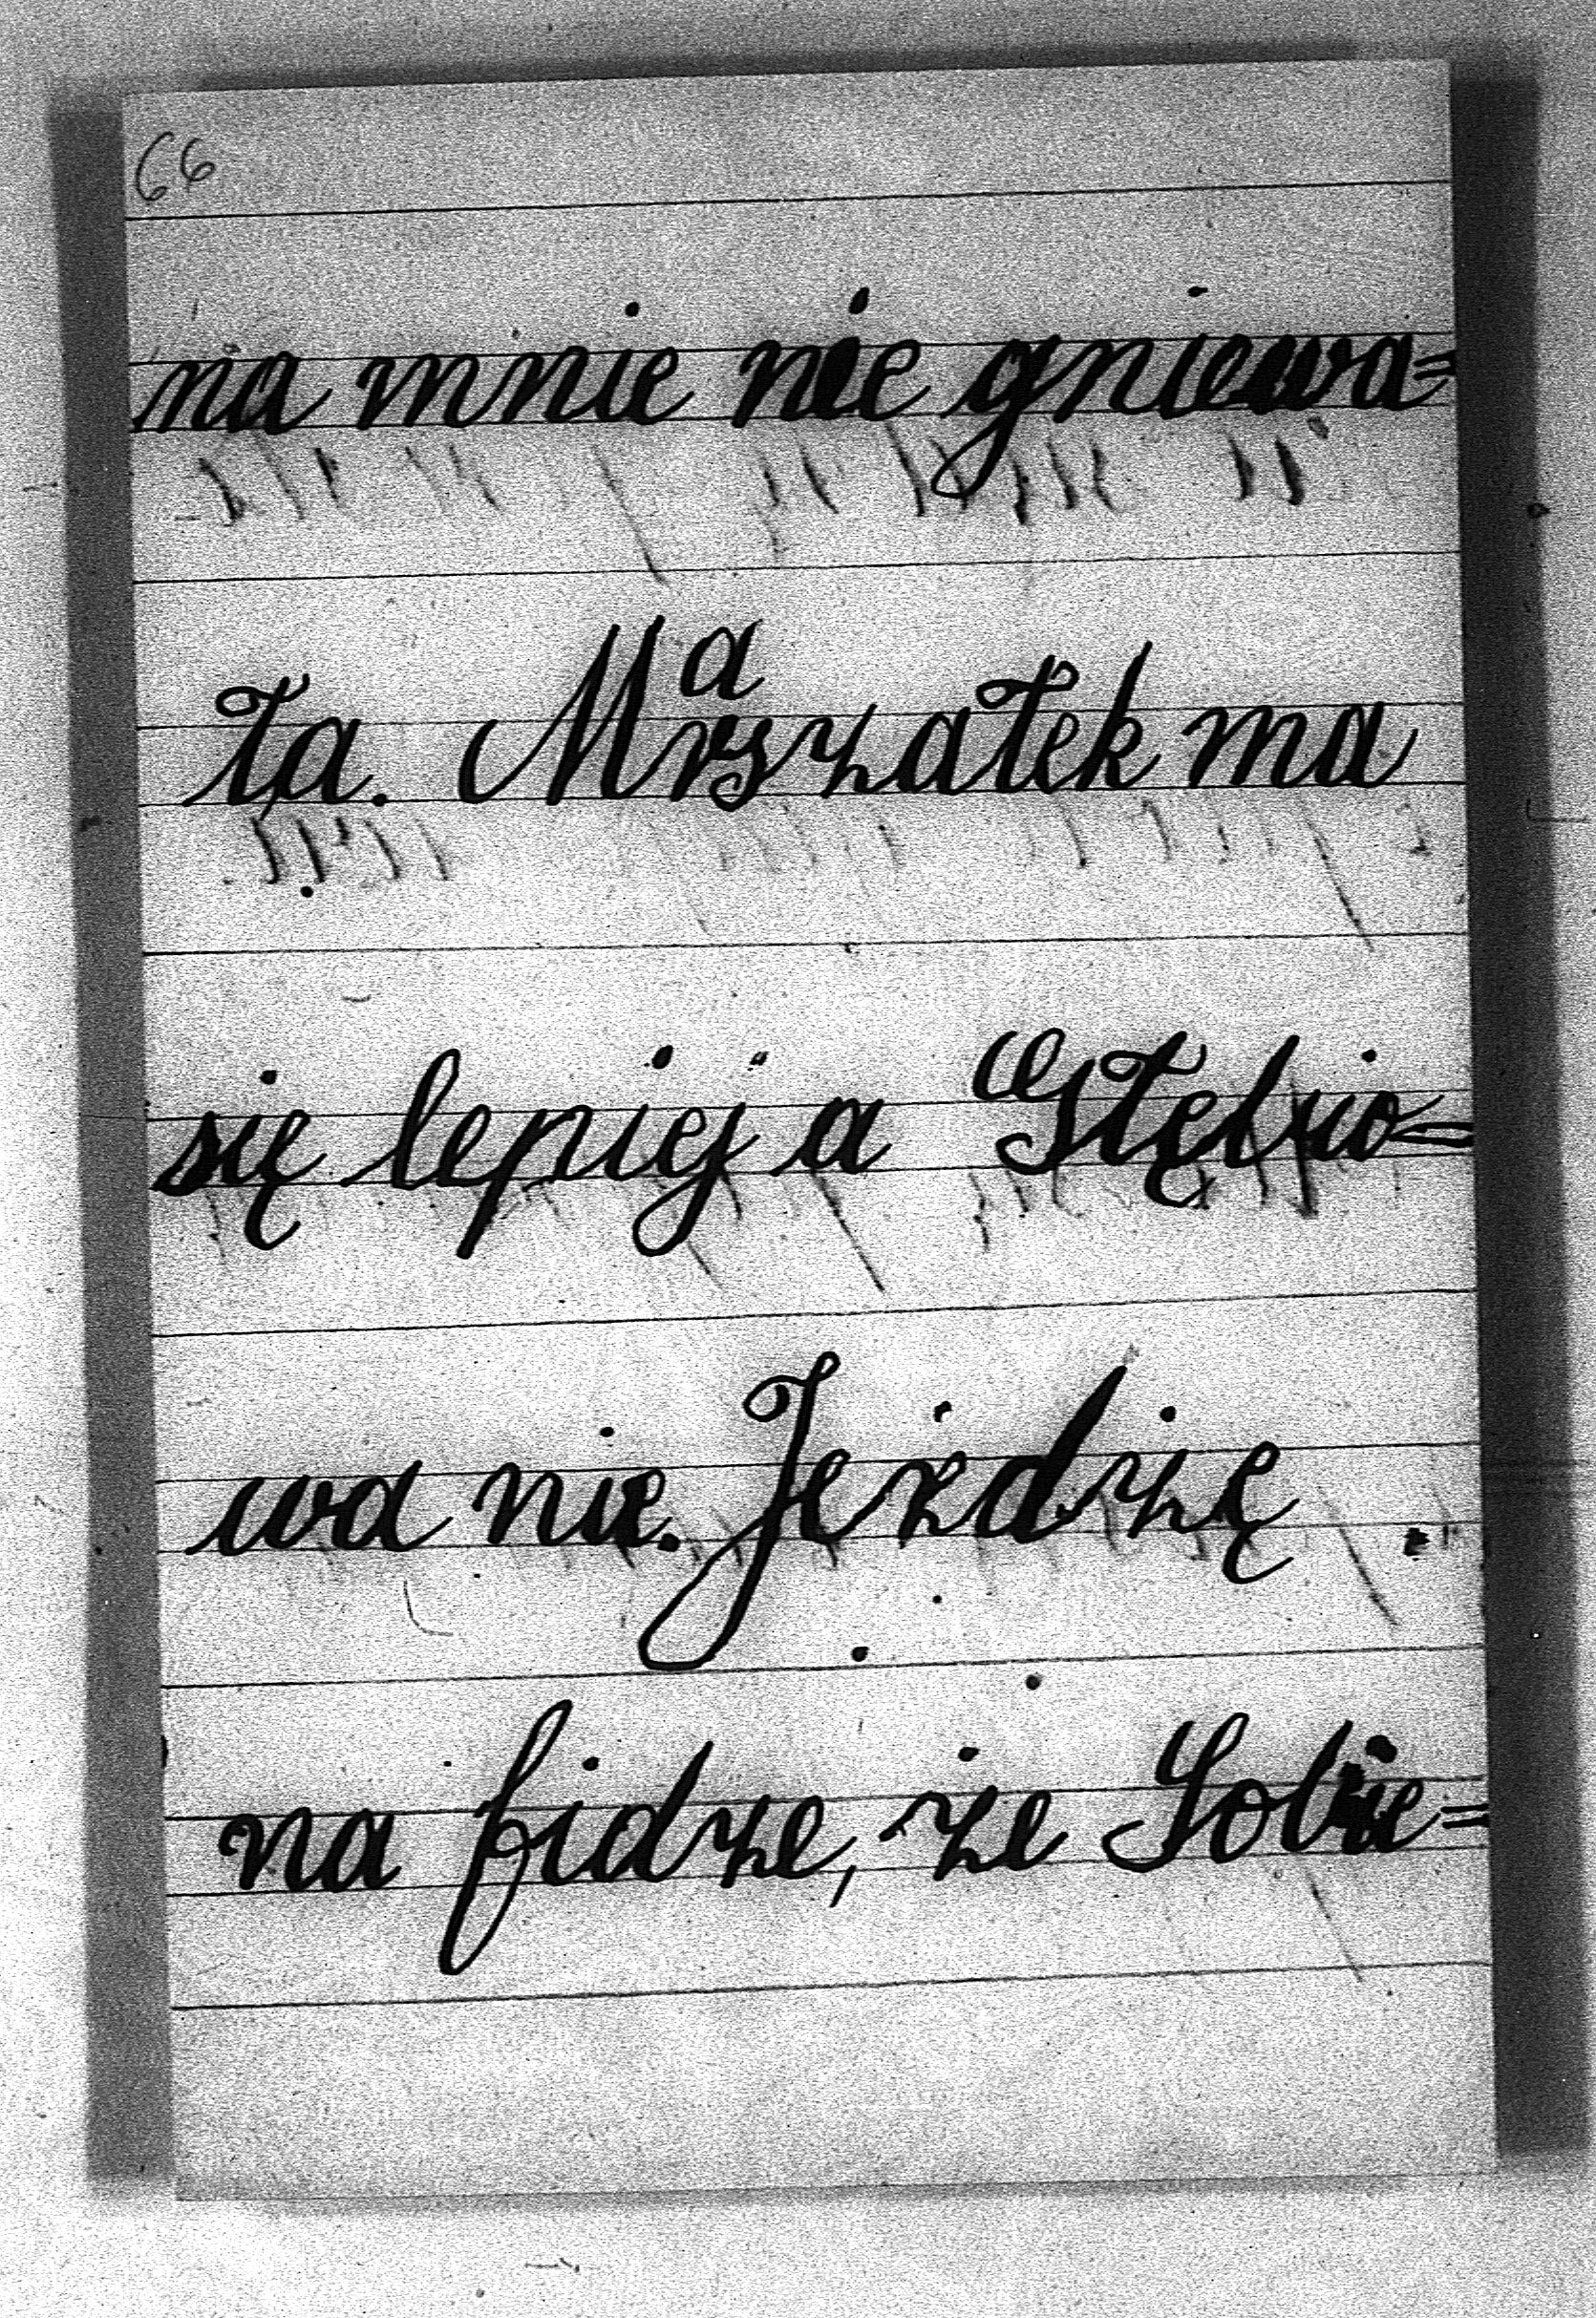 66
na mnie nie gniewa=
ła. Marszałek ma
się lepiej a Głębio=
wa nie. Jeżdżę
na fidze, że Sobie=